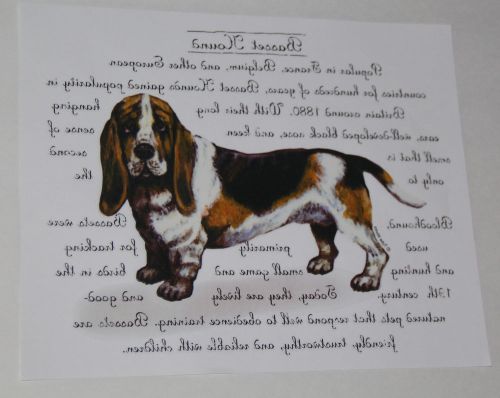 Basset Hound
Popular in France, Belgium, and other European
countries for hundreds of years, Basset Hounds gained popularity in
Britain around 1880. With their long hanging
ears, well-developed black nose, and keen sense of
smell that is second
only to the
Bloodhound, Bassets were
used primarily for tracking
and hunting small game and birds in the
17th century. Today, they are lively and good-
natured pets that respond well to obedience training. Bassets are
friendly, trustworthy, and reliable with children.